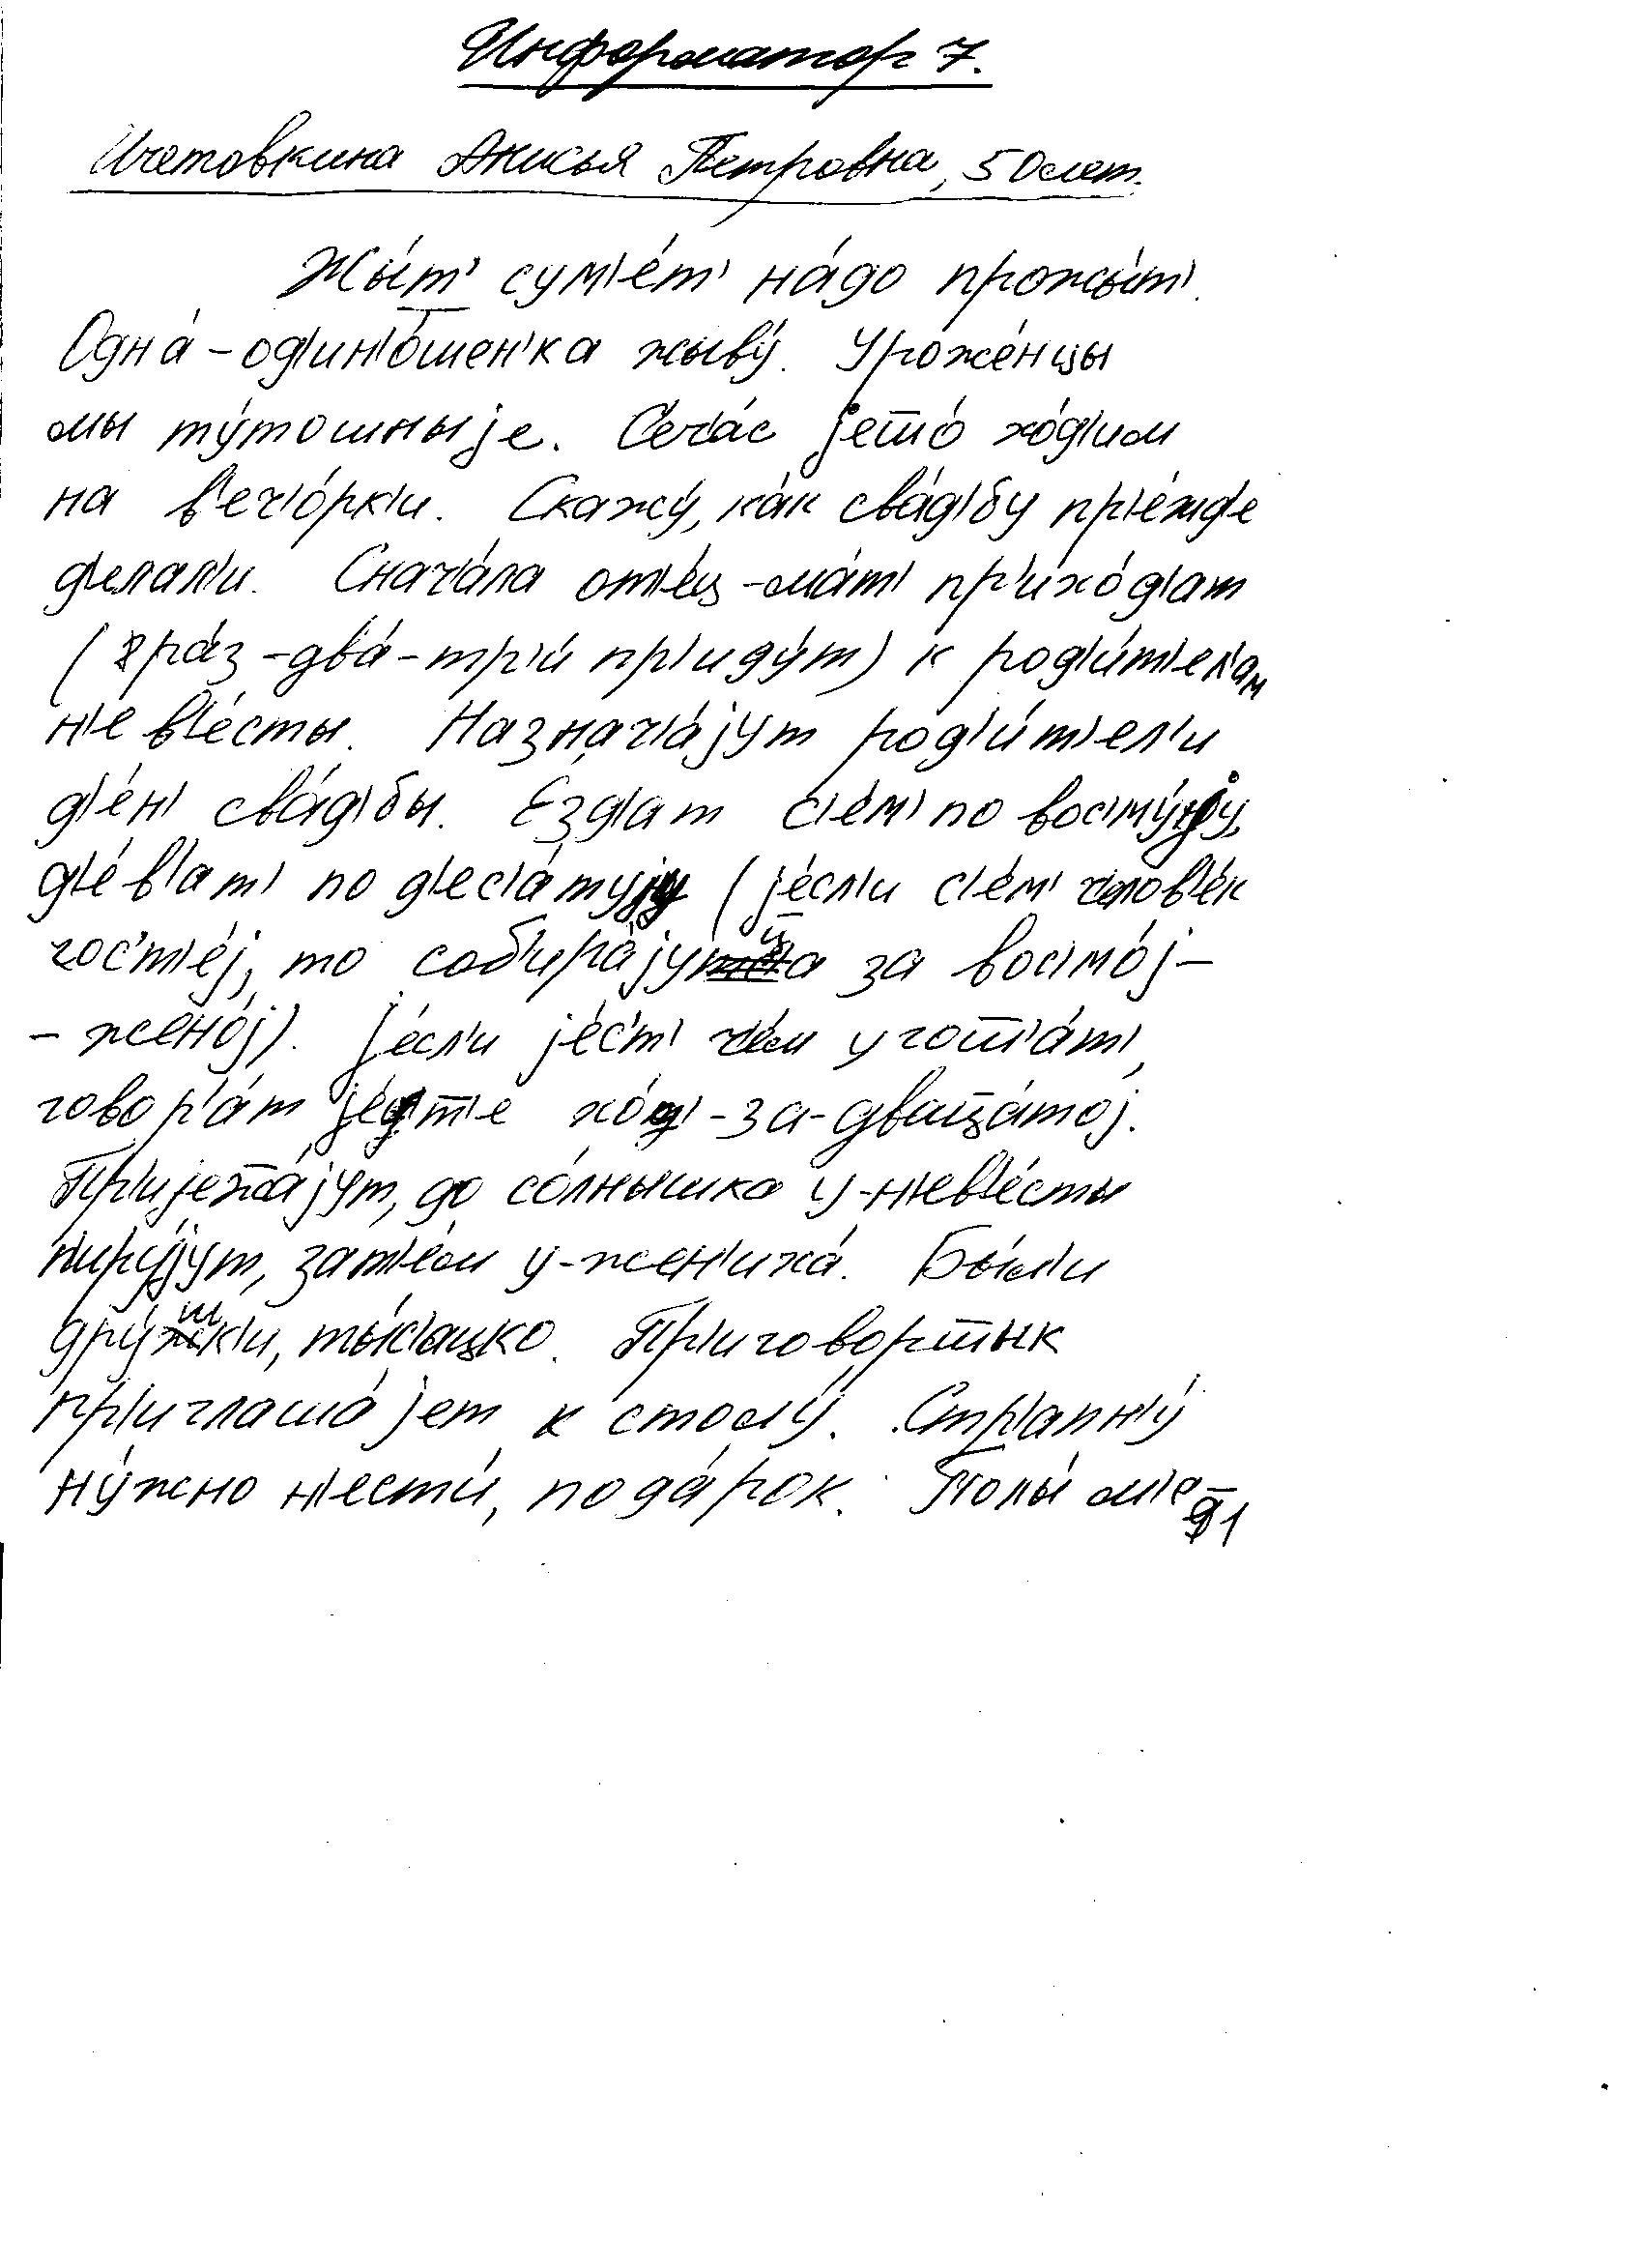 Информатор 7.
Ичетовкина Анисья Петровна, 50 лет.
Жы́т' сум'е́т' на́до прожы́т'.
Одна́-од'ин'о́шен'ка жыву́. Уроже́нцы
мы ту́тошныjе. С'еч'а́с jето́ хо́д'им
на в'еч'о́рк'и. Скажу́, ка́к сва́д'бу пр'е́жд'е
д'елал'и. Снач'а́ла от'е́ц-ма́т' пр'ихо́д'ат
(ра́з-два́-тр'и́ пр'иду́т) к род'и́т'ел'ам
н'ев'е́сты. Назнач'а́jут род'и́т'ел'и
д'е́н' сва́д'бы. Езд'ат с'е́м' по вос'му́jу,
д'е́в'ат' по д'ес'а́туjу (jе́сл'и с'е́м' ч'олов'е́к
гос'т'е́j, то соб'ира́jуц̄а за вос'мо́j-
-жено́j). Jе́сл'и jе́с'т' ч'е́м угот̄'а́т',
говор'а́т jе́т̄'е хо́д'-за-двац̄а́тоj.
Пр'иjеж̄а́jут, до со́лнышка у-н'ев'е́сты
п'иру́jут, зат'е́м у-жен'иха́. Бы́л'и
дру́шк'и, ты́с'ацко. Пр'иговорт̄ык
пр'иглаша́jет к столу́. Стр'апн'у́
ну́жно н'ест'и́, пода́рок. Полы́ м'е